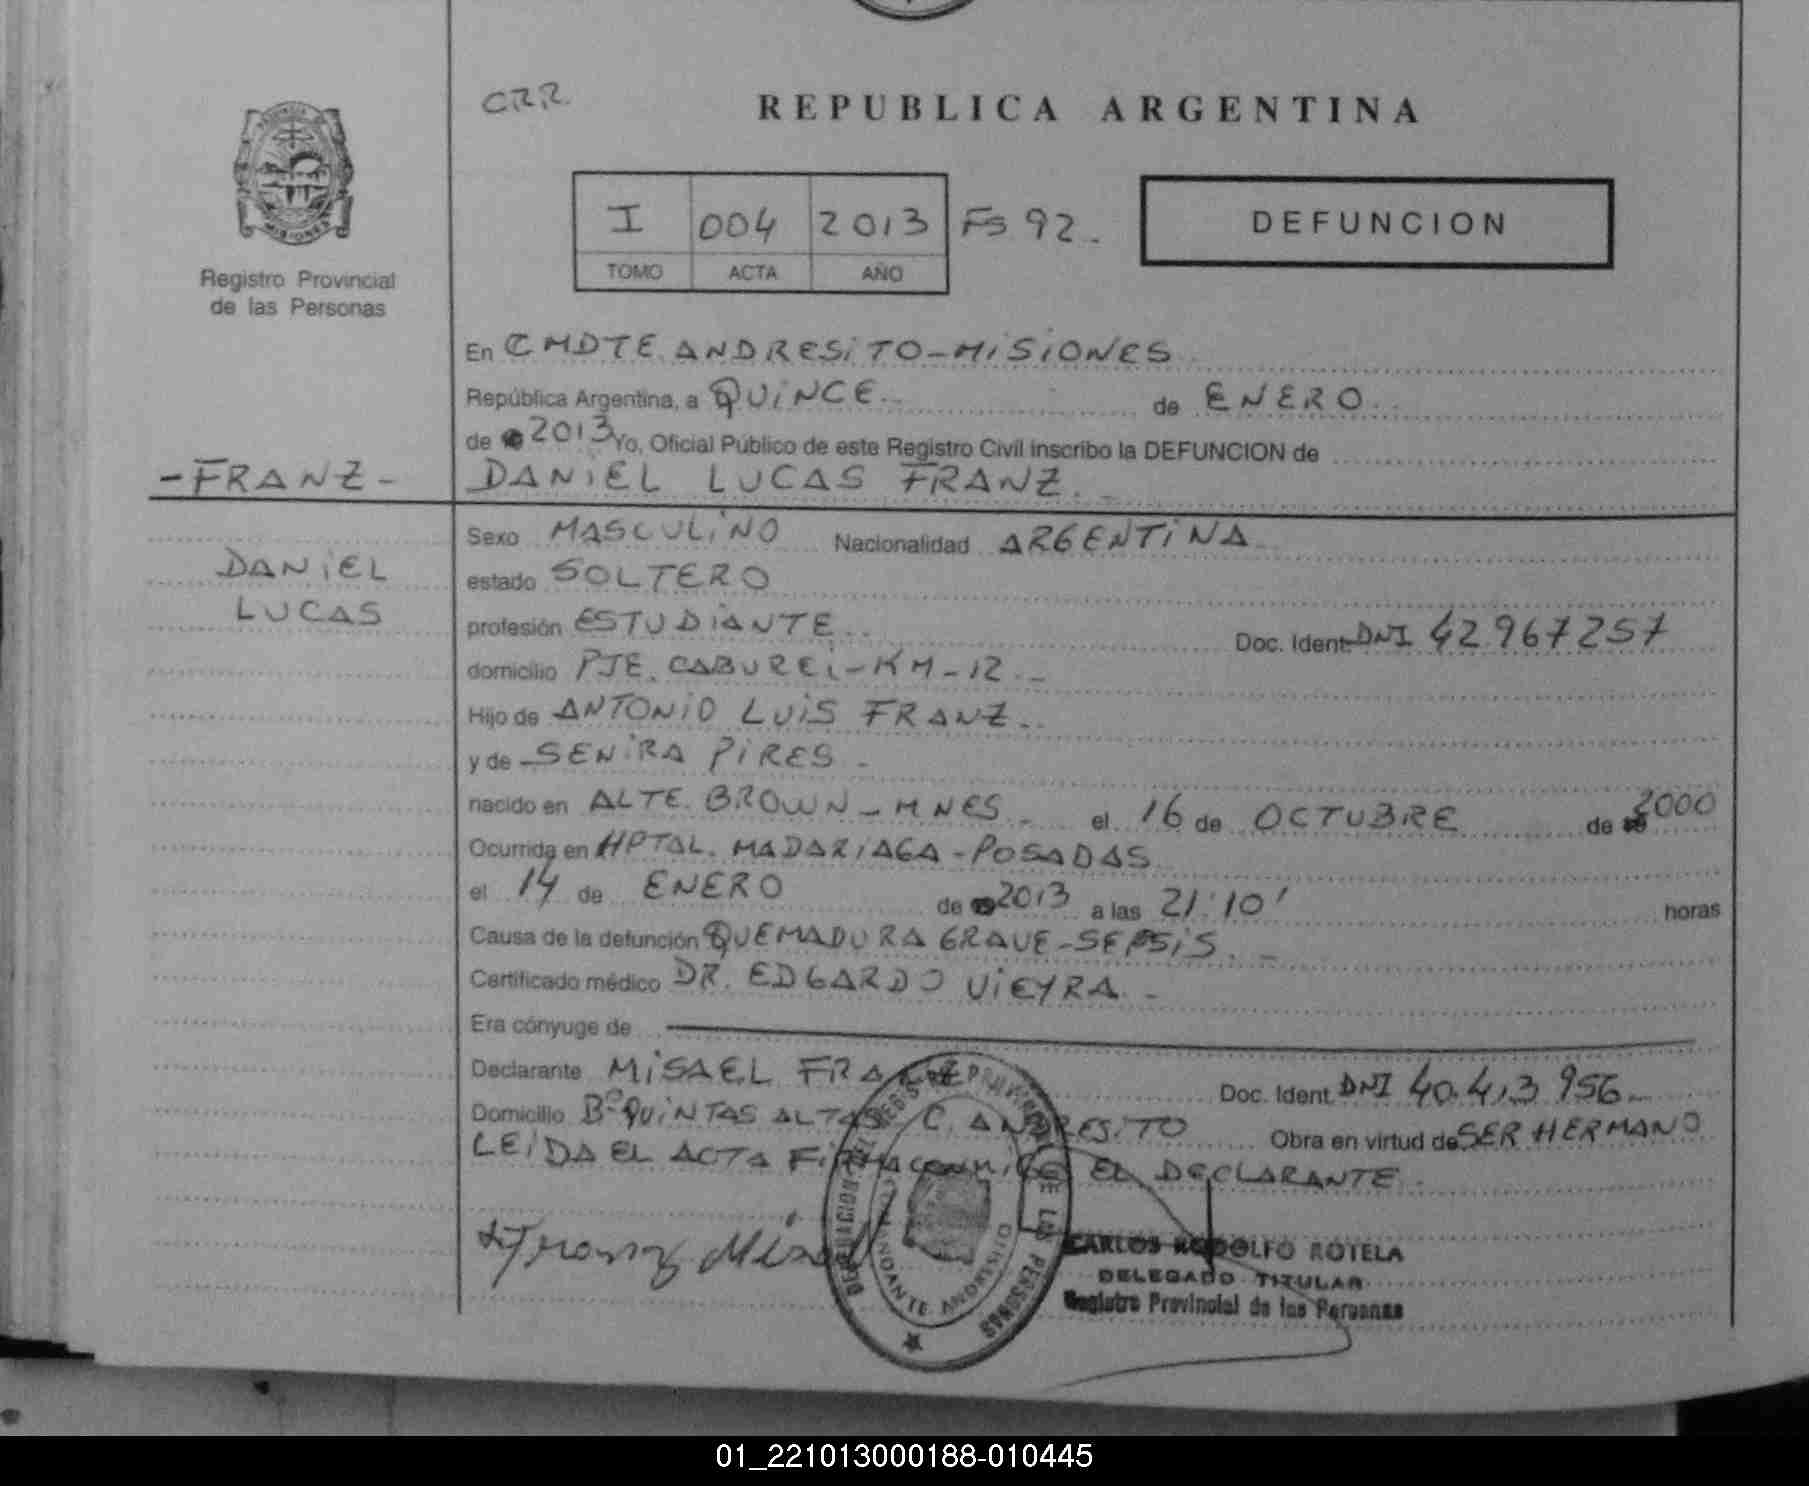 CRR.
REPUBLICA ARGENTINA
MISIONES
Registro Provincial
de las Personas
I 004 2013 FS 92.-
TOMO ACTA AÑO
DEFUNCION
En CMDTE. ANDRESiTO-MiSiONES
República Argentina, a QUiNCE.- de ENERO.
de 2013 Yo, Oficial Público de este Registro Civil inscribo la DEFUNCION de
-FRANZ-
DANiEL LUCAS FRANZ.-
DANiEL
LUCAS
Sexo MASCULiNO Nacionalidad ARGENTiNA
estado SOLTERO
profesión ESTUDiANTE.. Doc. Ident. DNI 42.967257
domicilio PJE. CABUREi-KM-12.-
Hijo de ANTONiO LUiS FRANZ.-
y de SENiRA PiRES.-
nacido en ALTE. BROWN-MNES.- el 16 de OCTUBRE de 2000
Ocurrida en HPTAL. MADARiAGA-POSADAS
el 14 de ENERO de 2013 a las 21:10' horas
Causa de la defunción QUEMADURA GRAVE-SEPSiS.-
Certificado médico DR. EDGARDO ViEYRA.-
Era cónyuge de
Declarante MiSAEL FRANZ Doc. Ident. DNI 40.413.956.-
Domicilio Bº QUiNTAS ALTAS C. ANDRESiTO Obra en virtud de SER HERMANO
LEiDA EL ACTA FiRMA CONMiGO EL DECLARANTE.
Franz Misael
DELEGACION DEL REGISTRO PROVINCIAL DE LAS PERSONAS
COMANDANTE ANDRESITO
CARLOS RODOLFO ROTELA
DELEGADO TITULAR
Registro Provincial de las Personas
01_221013000188-010445